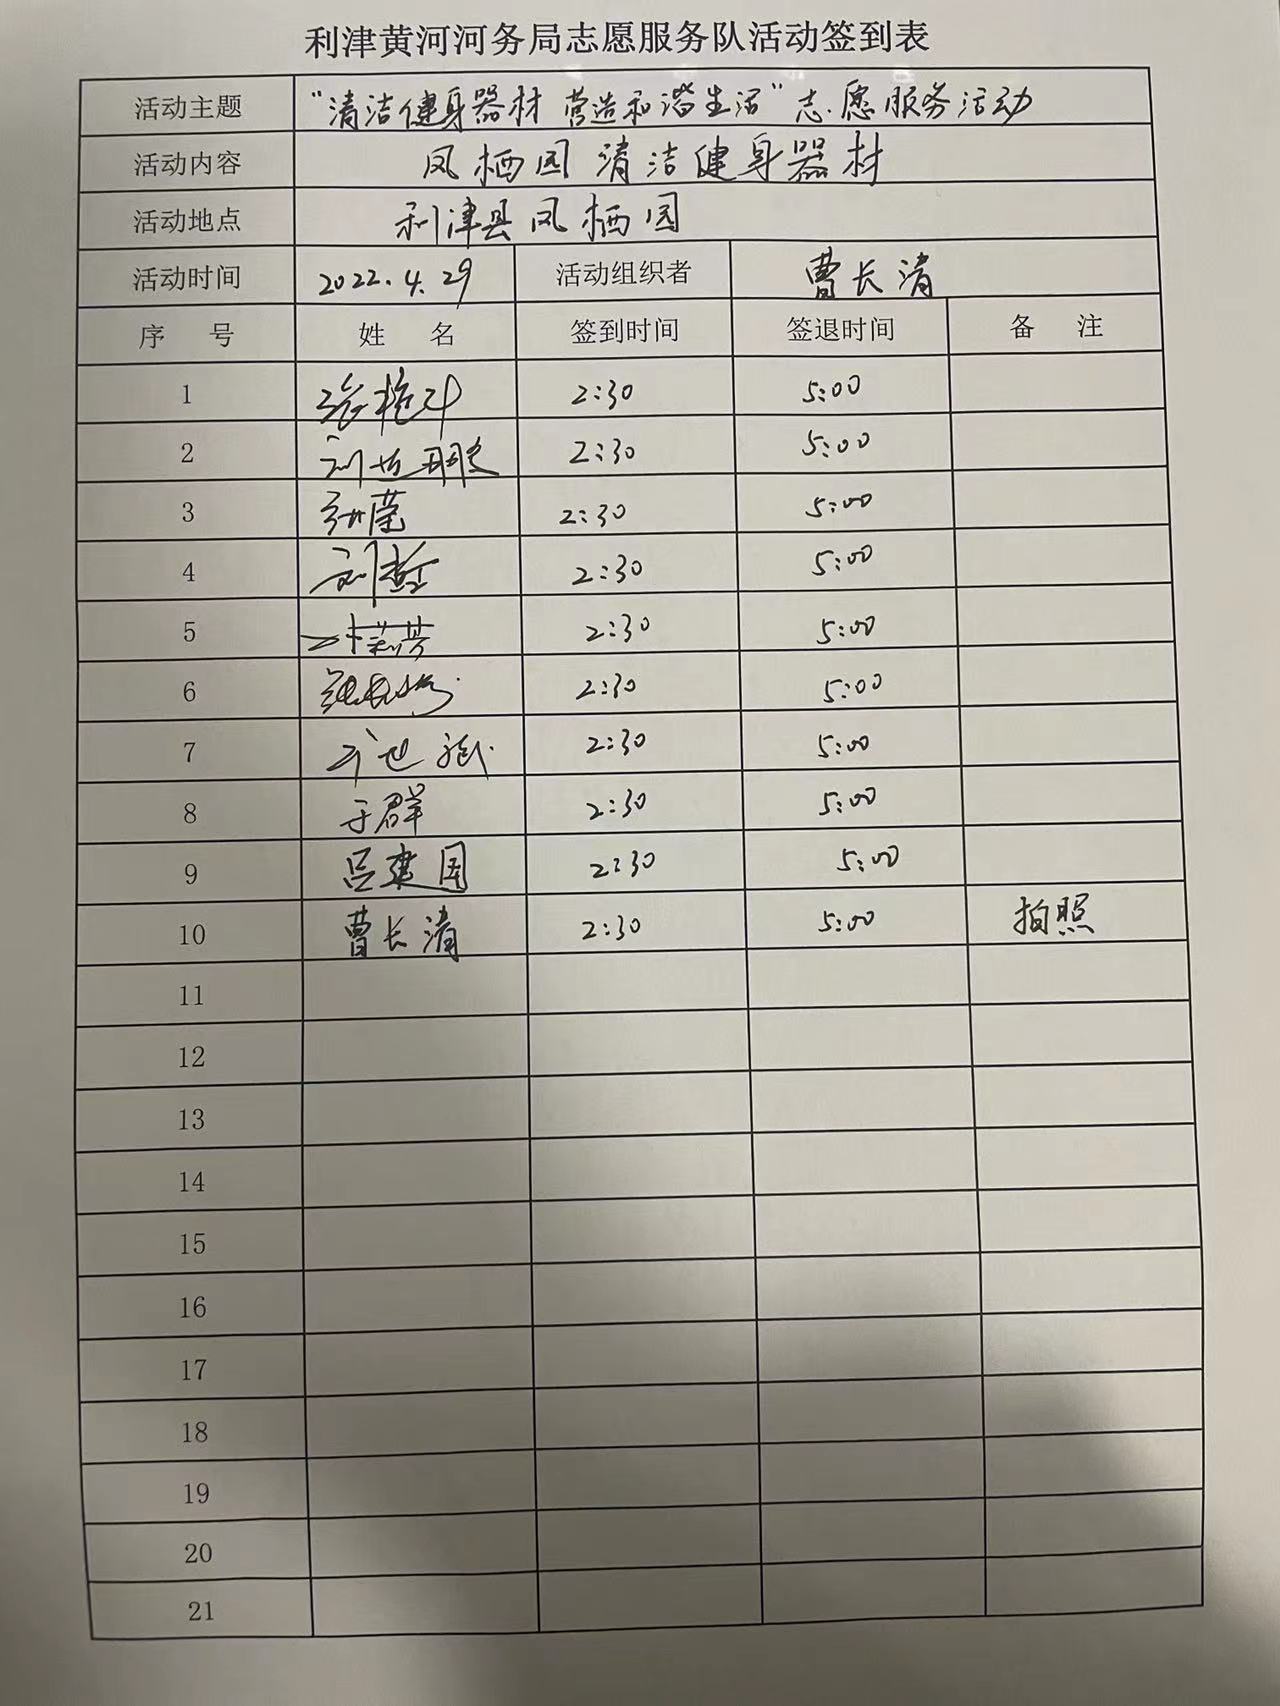 利津黄河河务局志愿服务队活动签到表
活动主题 “清洁健身器材 营造和谐生活”志愿服务活动
活动内容 凤栖园清洁健身器材
活动地点 利津县凤栖园
活动时间 2022.4.29 活动组织者 曹长清
序 号 姓 名 签到时间 签退时间 备 注
1 2:30 5:00
2 刘 2:30 5:00
3 2:30 5:00
4 刘 2:30 5:00
5 2:30 5:00
6 2:30 5:00
7 2:30 5:00
8 于群 2:30 5:00
9 吕建国 2:30 5:00
10 曹长清 2:30 5:00 拍照
11
12
13
14
15
16
17
18
19
20
21